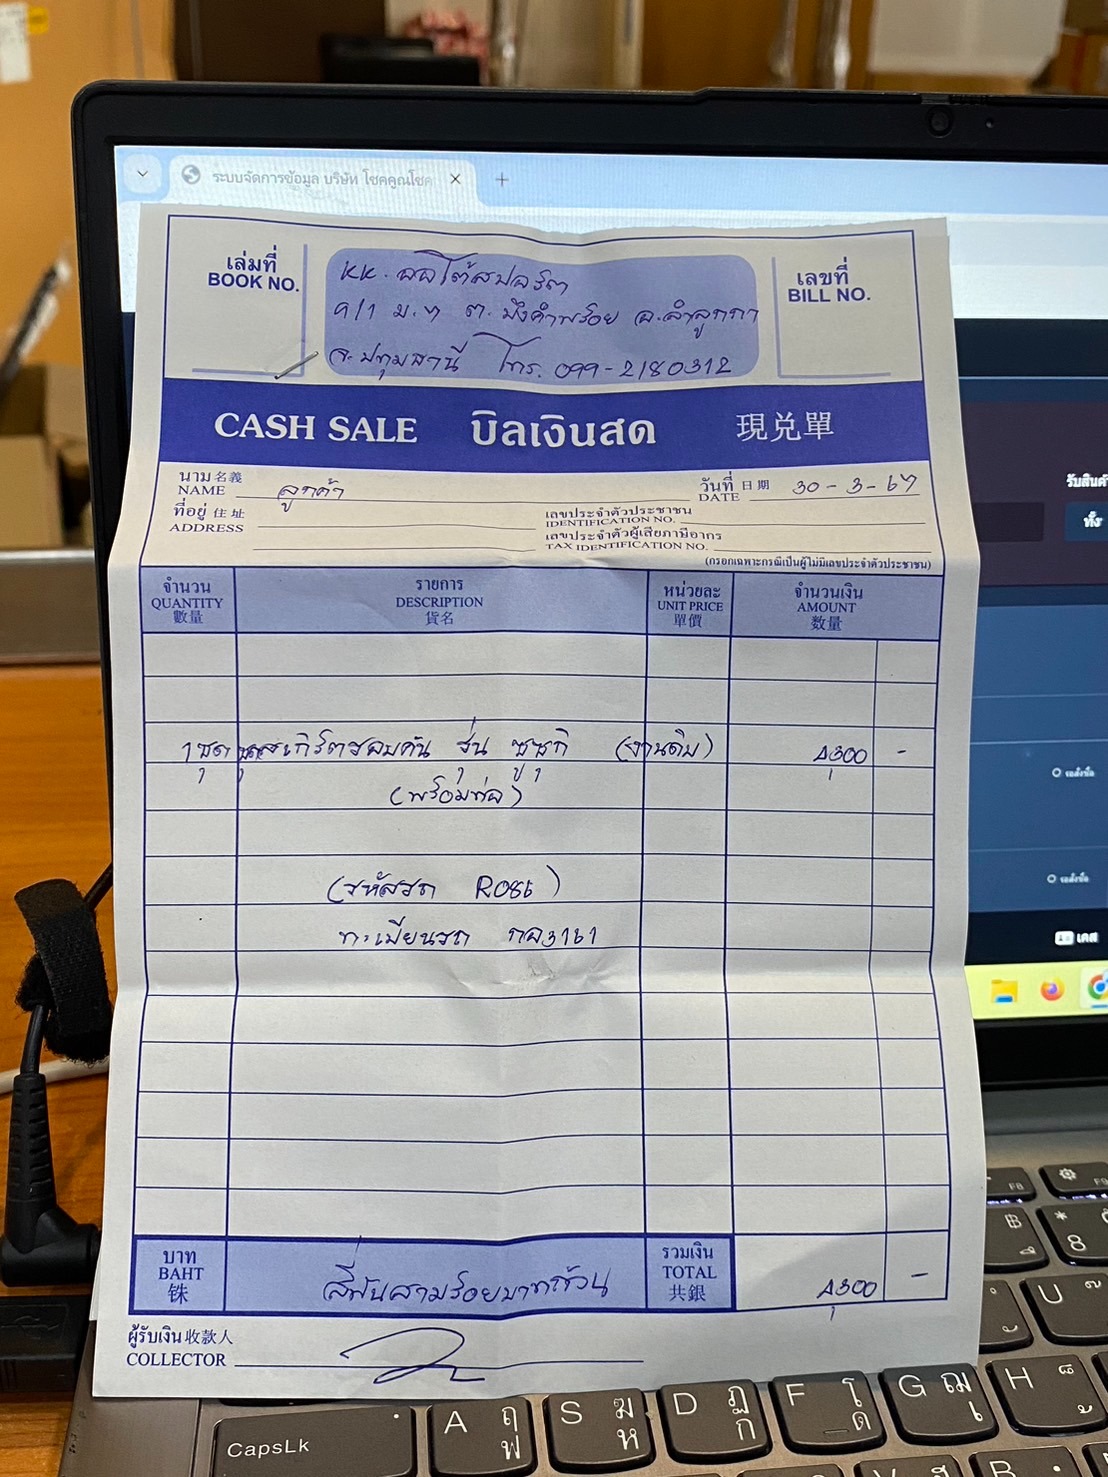 ระบบจัดการข้อมูล บริษัท โชคคูณโชค
เล่มที่
BOOK NO.
KK. ออโต้สปอร์ต
9/1 ม.7 ต. บึงคำพร้อย อ.ลำลูกกา
จ.ปทุมธานี โทร. 099-2180312
เลขที่
BILL NO.
CASH SALE บิลเงินสด 現兑單
นาม 名義
NAME ลูกค้า
วันที่ 日期
DATE 30-3-67
ที่อยู่ 住址
ADDRESS
เลขประจำตัวประชาชน
IDENTIFICATION NO.
เลขประจำตัวผู้เสียภาษีอากร
TAX IDENTIFICATION NO.
(กรอกเฉพาะกรณีเป็นผู้ไม่มีเลขประจำตัวประชาชน)
จำนวน รายการ หน่วยละ จำนวนเงิน
QUANTITY DESCRIPTION UNIT PRICE AMOUNT
數量 貨名 單價 数量
1ชุด ชุดสเกิร์ตรอบคัน รุ่น ซูซูกิ (งานดิบ) 4,300 -
(พร้อมท่อ)
(รหัสรถ R086)
ทะเบียนรถ กอ3161
บาท
BAHT
铢
สี่พันสามร้อยบาทถ้วน
รวมเงิน
TOTAL
共銀
4,300 -
ผู้รับเงิน 收款人
COLLECTOR
รับสินค้า
ทั้ง
รอสั่งซื้อ
รอสั่งซื้อ
เคส
F8
F9
฿
*
8
U
CapsLk
A ฤ ฟ
S ฆ ห
D ฏ ก
F โ ด
G ฌ เ
H